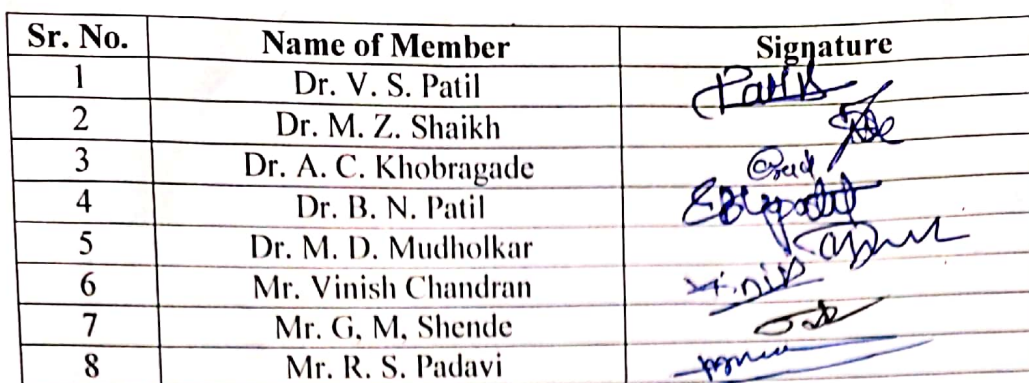 Sr. No. Name of Member Signature
1 Dr. V. S. Patil
2 Dr. M. Z. Shaikh
3 Dr. A. C. Khobragade
4 Dr. B. N. Patil
5 Dr. M. D. Mudholkar
6 Mr. Vinish Chandran
7 Mr. G, M, Shende
8 Mr. R. S. Padavi